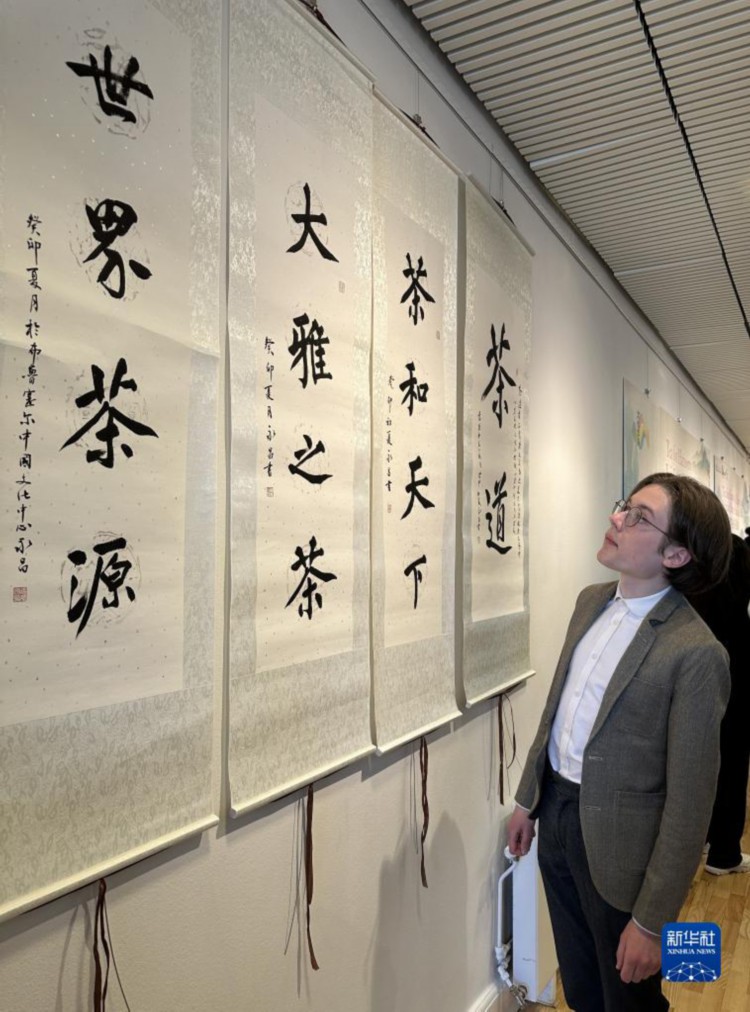 世界茶源
癸卯夏月於布魯塞尔中國文化中心永昌
大雅之茶
癸卯夏月永昌書
茶和天下
癸卯初夏永昌書
茶道
新华社
XINHUA NEWS